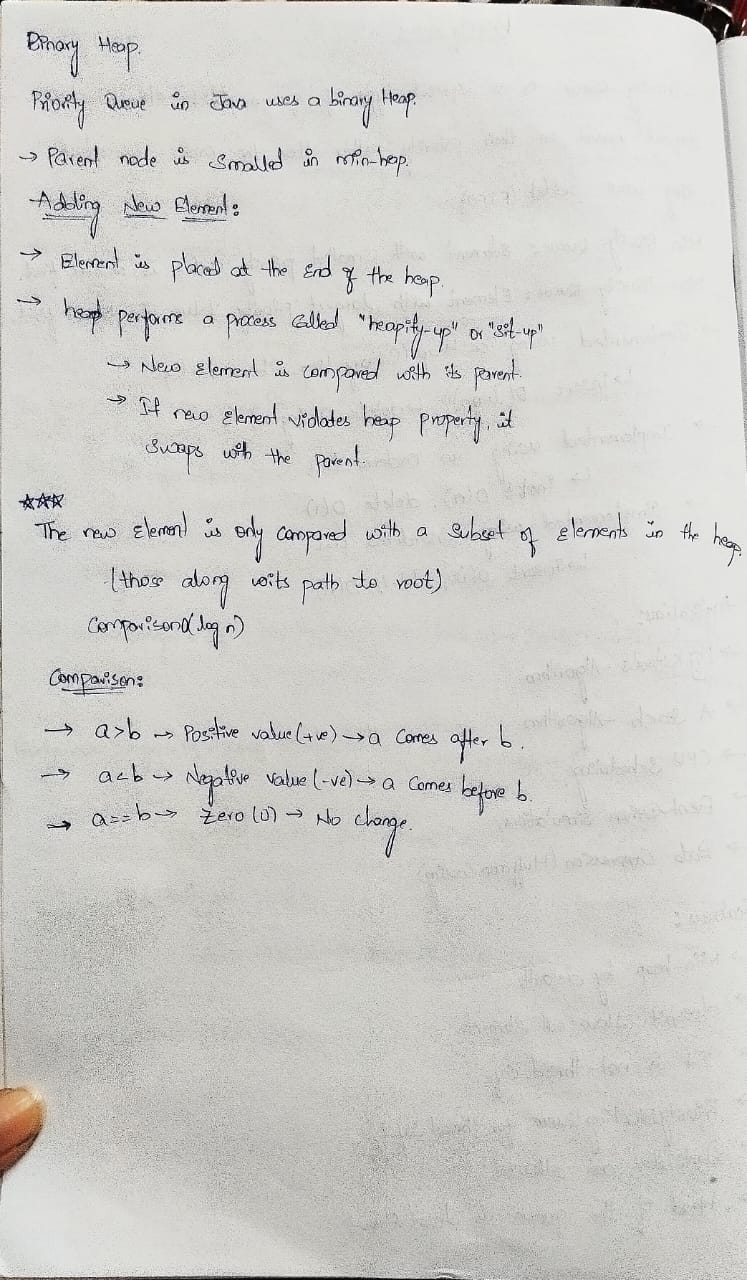 Binary Heap.
Priority Queue in Java uses a binary Heap.
→ Parent node is smalled in min-heap.
Adding New Element:
→ Element is placed at the end of the heap.
→ heap performs a process called "heapify-up" or "sit-up"
→ New element is compared with its parent.
→ If new element violates heap property, it
swaps with the parent.
☆☆☆
The new element is only compared with a subset of elements in the heap.
(those along with its path to root)
Comparison O(log n)
Comparison:
→ a>b → Positive value (+ve) → a comes after b.
→ a<b → Negative value (-ve) → a comes before b.
→ a==b → Zero (0) → No change.